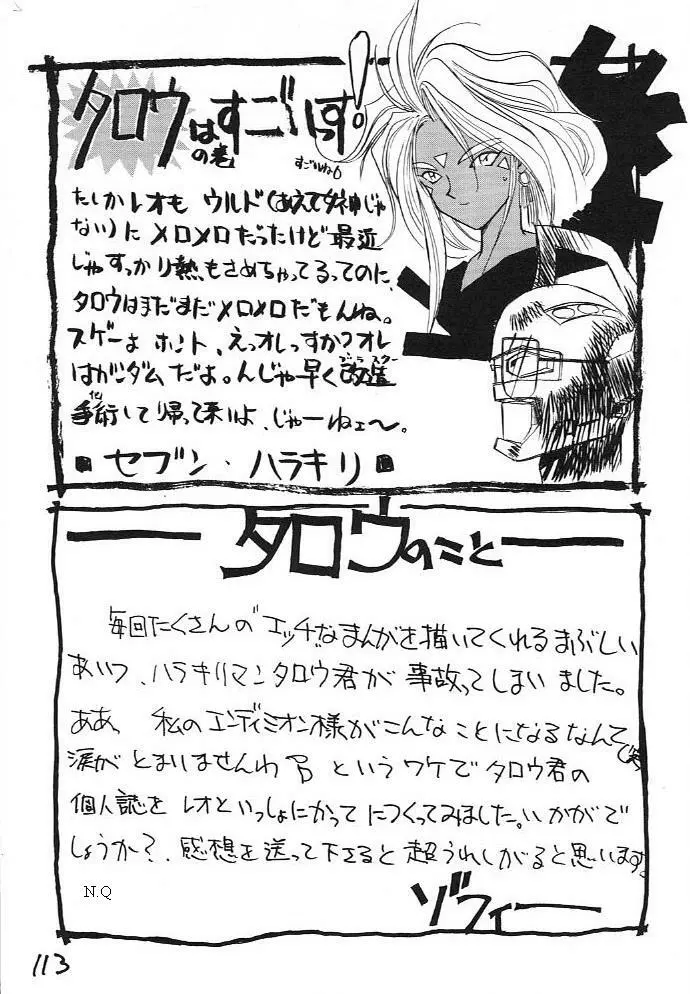 タロウはすごいっす!
の巻
すごいね
たしかレオも ウルド(あえて女神じゃ
ない)に メロメロだったけど 最近
じゃすっかり熱もさめちゃってるってのに、
タロウはまだまだメロメロだもんね。
スゲーよ ホント、えっオレっすか?オレ
はガンダムだよ。んじゃ早く改造
手術して帰って来いよ、じゃーねェ〜。
セブン・ハラキリ
タロウのこと
毎回たくさんの"エッチ"なまんがを描いてくれるまぶしい
あいつ、ハラキリマンタロウ君が 事故ってしまいました。
ああ、私のエンディミオン様がこんなことになるなんて(笑)
涙がとまりませんわ というワケでタロウ君の
個人誌を レオといっしょにかってにつくってみました。いかがで
しょうか?、感想を送って下さると超うれしがると思います。
N.Q
ゾフィー
113